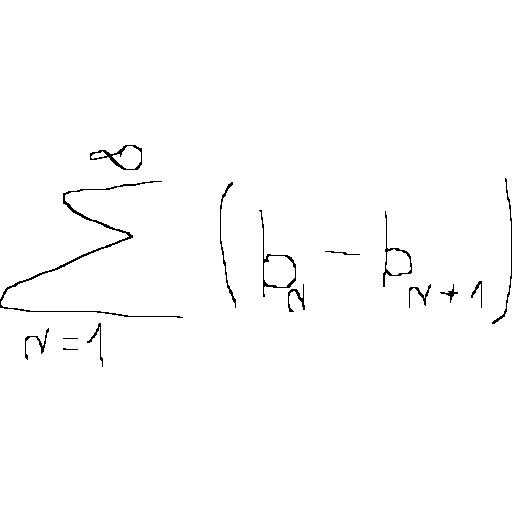 \sum_{n=1}^{\infty} (b_n - b_{n+1})